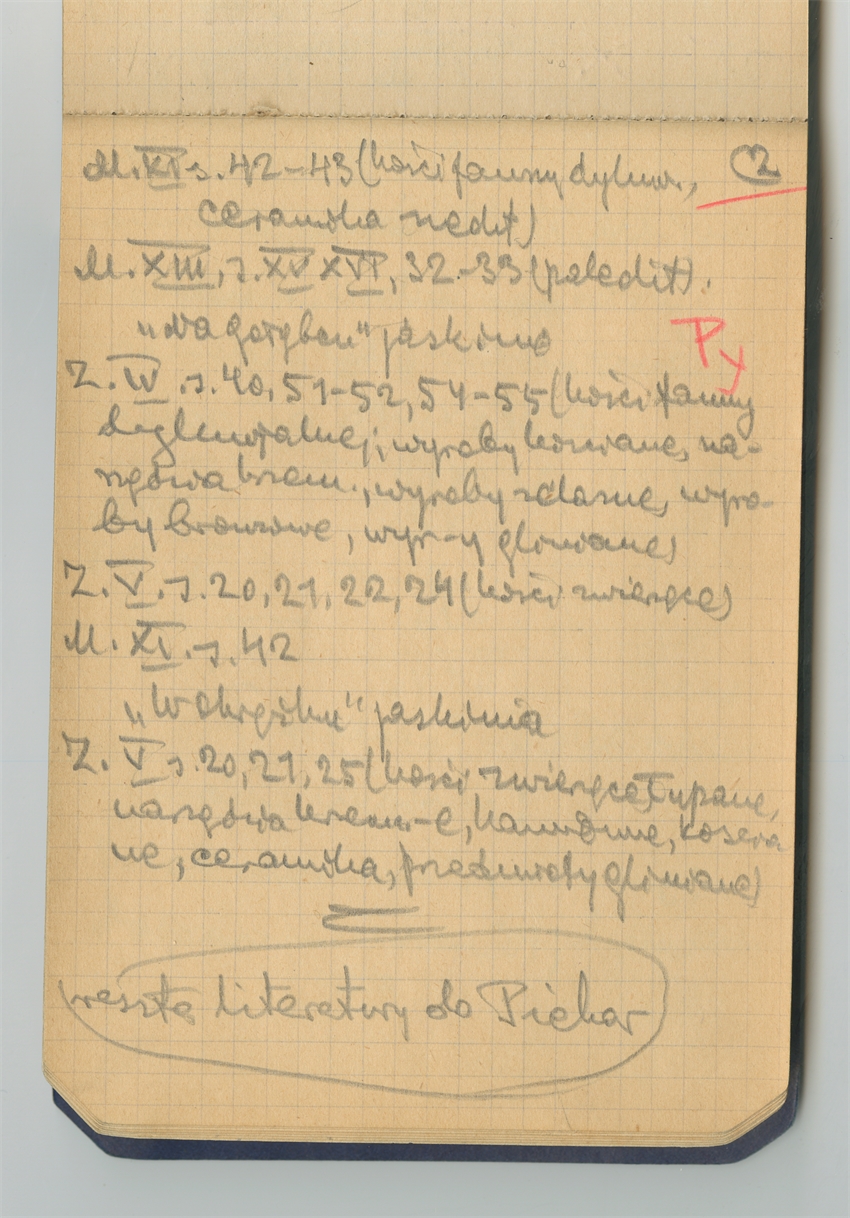 M. XI s. 42-43 (kości fauny dyluw.,
2
ceramika neolit)
M. XIII, s. XV XVI, 32-33 (paleolit).
„Na Gołąbcu” jaskinia
Py
Z. IV. s. 40, 51-52, 54-55 (kości fauny
dyluwialnej, wyroby kościane, na-
rzędzia krzem., wyroby żelazne, wyro-
by bronzowe, wyr-y gliniane)
Z. V. s. 20, 21, 22, 24 (kości zwierzęce)
M. XI. s. 42
„W Okrążku” jaskinia
Z. V s. 20, 21, 25 (kości zwierzęce łupane,
narzędzia krzem-e, kamienne, kościa
ne, ceramika, przedmioty gliniane)
reszta literatury do Piekar